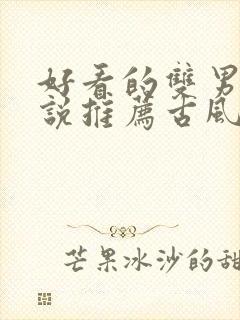 好看的雙男
說推薦古風
芒果冰沙的甜